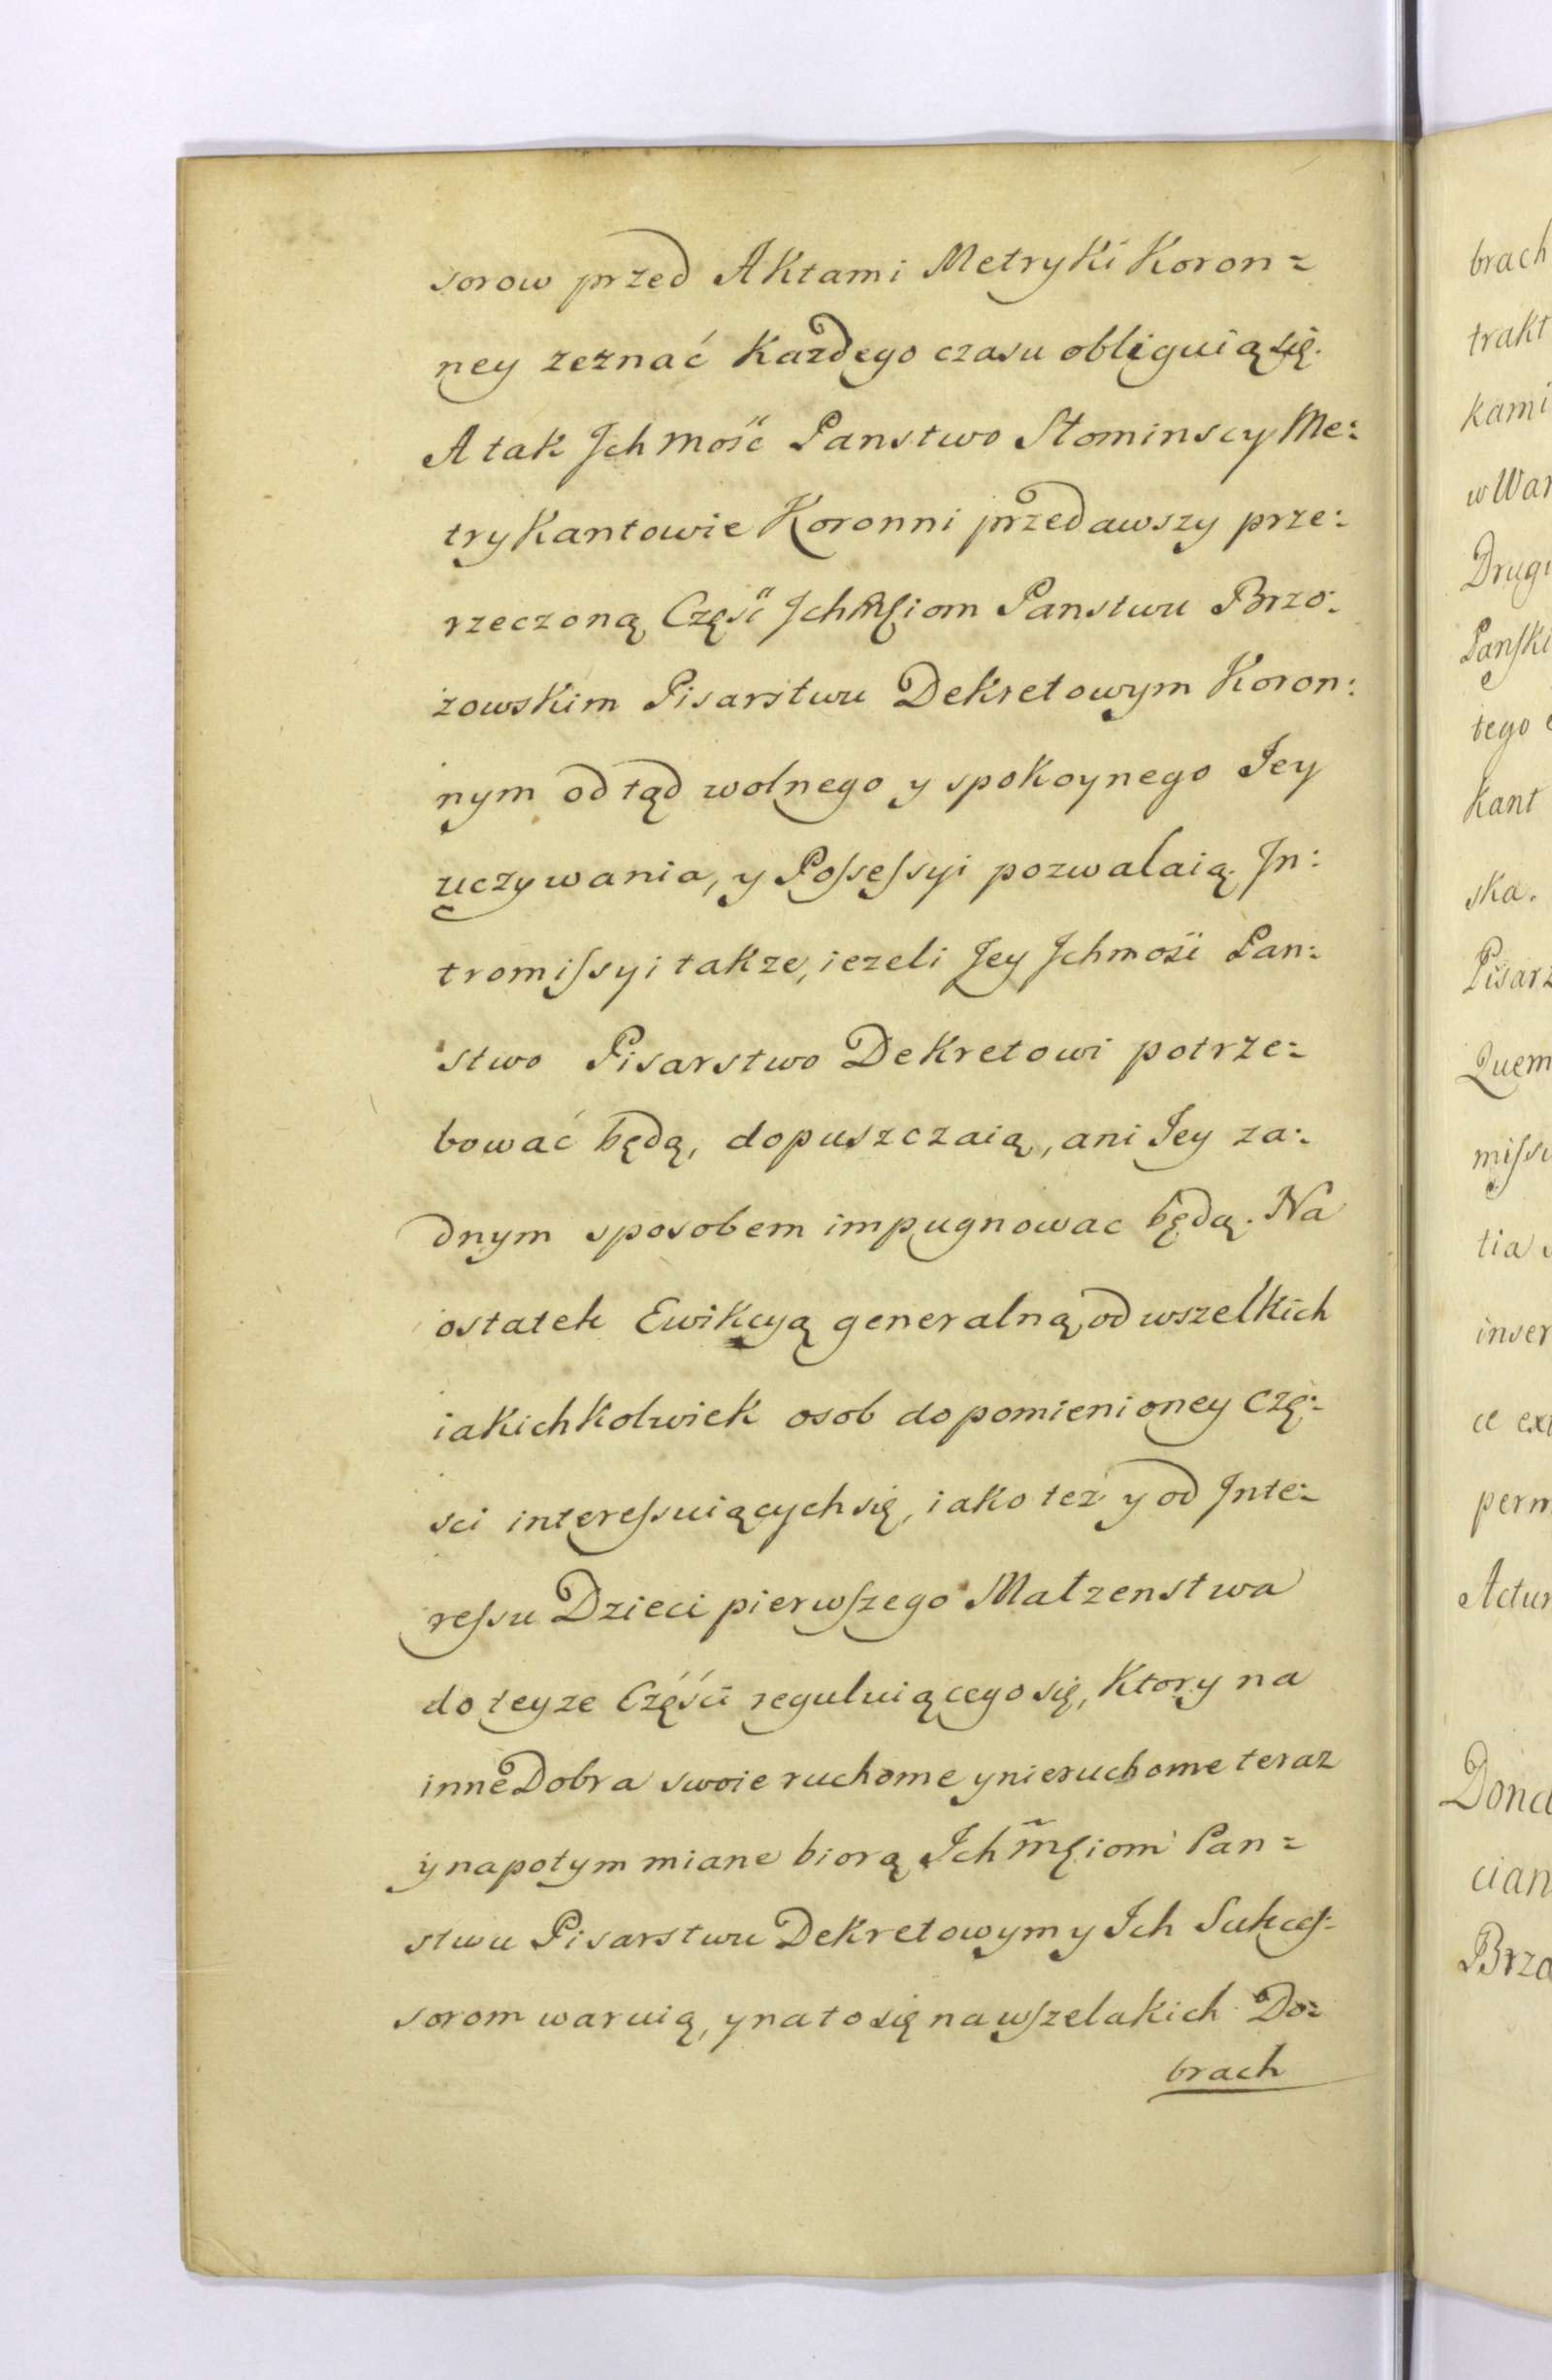 sorow przed Aktami Metryki Koron=
ney zeznać każdego czasu obliguią się.
A tak Jchmość Panstwo Słominscy Me:
trykantowie Koronni przedawszy prze:
rzeczoną Część Jchmſciom Panstwu Brzo:
zowskim Pisarstwu Dekretowym Koron:
nym odtąd wolnego y spokoynego Jey
uczywania, y Poſseſsyi pozwalaią. Jn:
tromiſsyi takze, iezeli Jey Jchmość Pan:
stwo Pisarstwo Dekretowi potrze:
bować będą, dopuszczaią, ani Jey za:
dnym sposobem impugnowac będą. Na
ostatek Ewikcyą generalną od wszelkich
iakichkolwiek osob do pomienioney Czę:
sci intereſsuiących się, iako też y od Jnte:
reſsu Dzieci pierwſzego Małzenstwa
do teyze Części reguluiącego się, Ktory na
inne Dobra swoie ruchome y nieruchome teraz
y napotym miane biorą Jchmſciom Pan=
stwu Pisarstwu Dekretowym y Jch Sukceſ:
sorom waruią, y na to się na wſzelakich Do:
brach
brach
trakt
kami
w War
Drugi
Panſki
tego
kant
ska.
Pisarz
Quem
miſsi
tia
inser
ce ex
perm
Actum
Dona
cian
Brzo